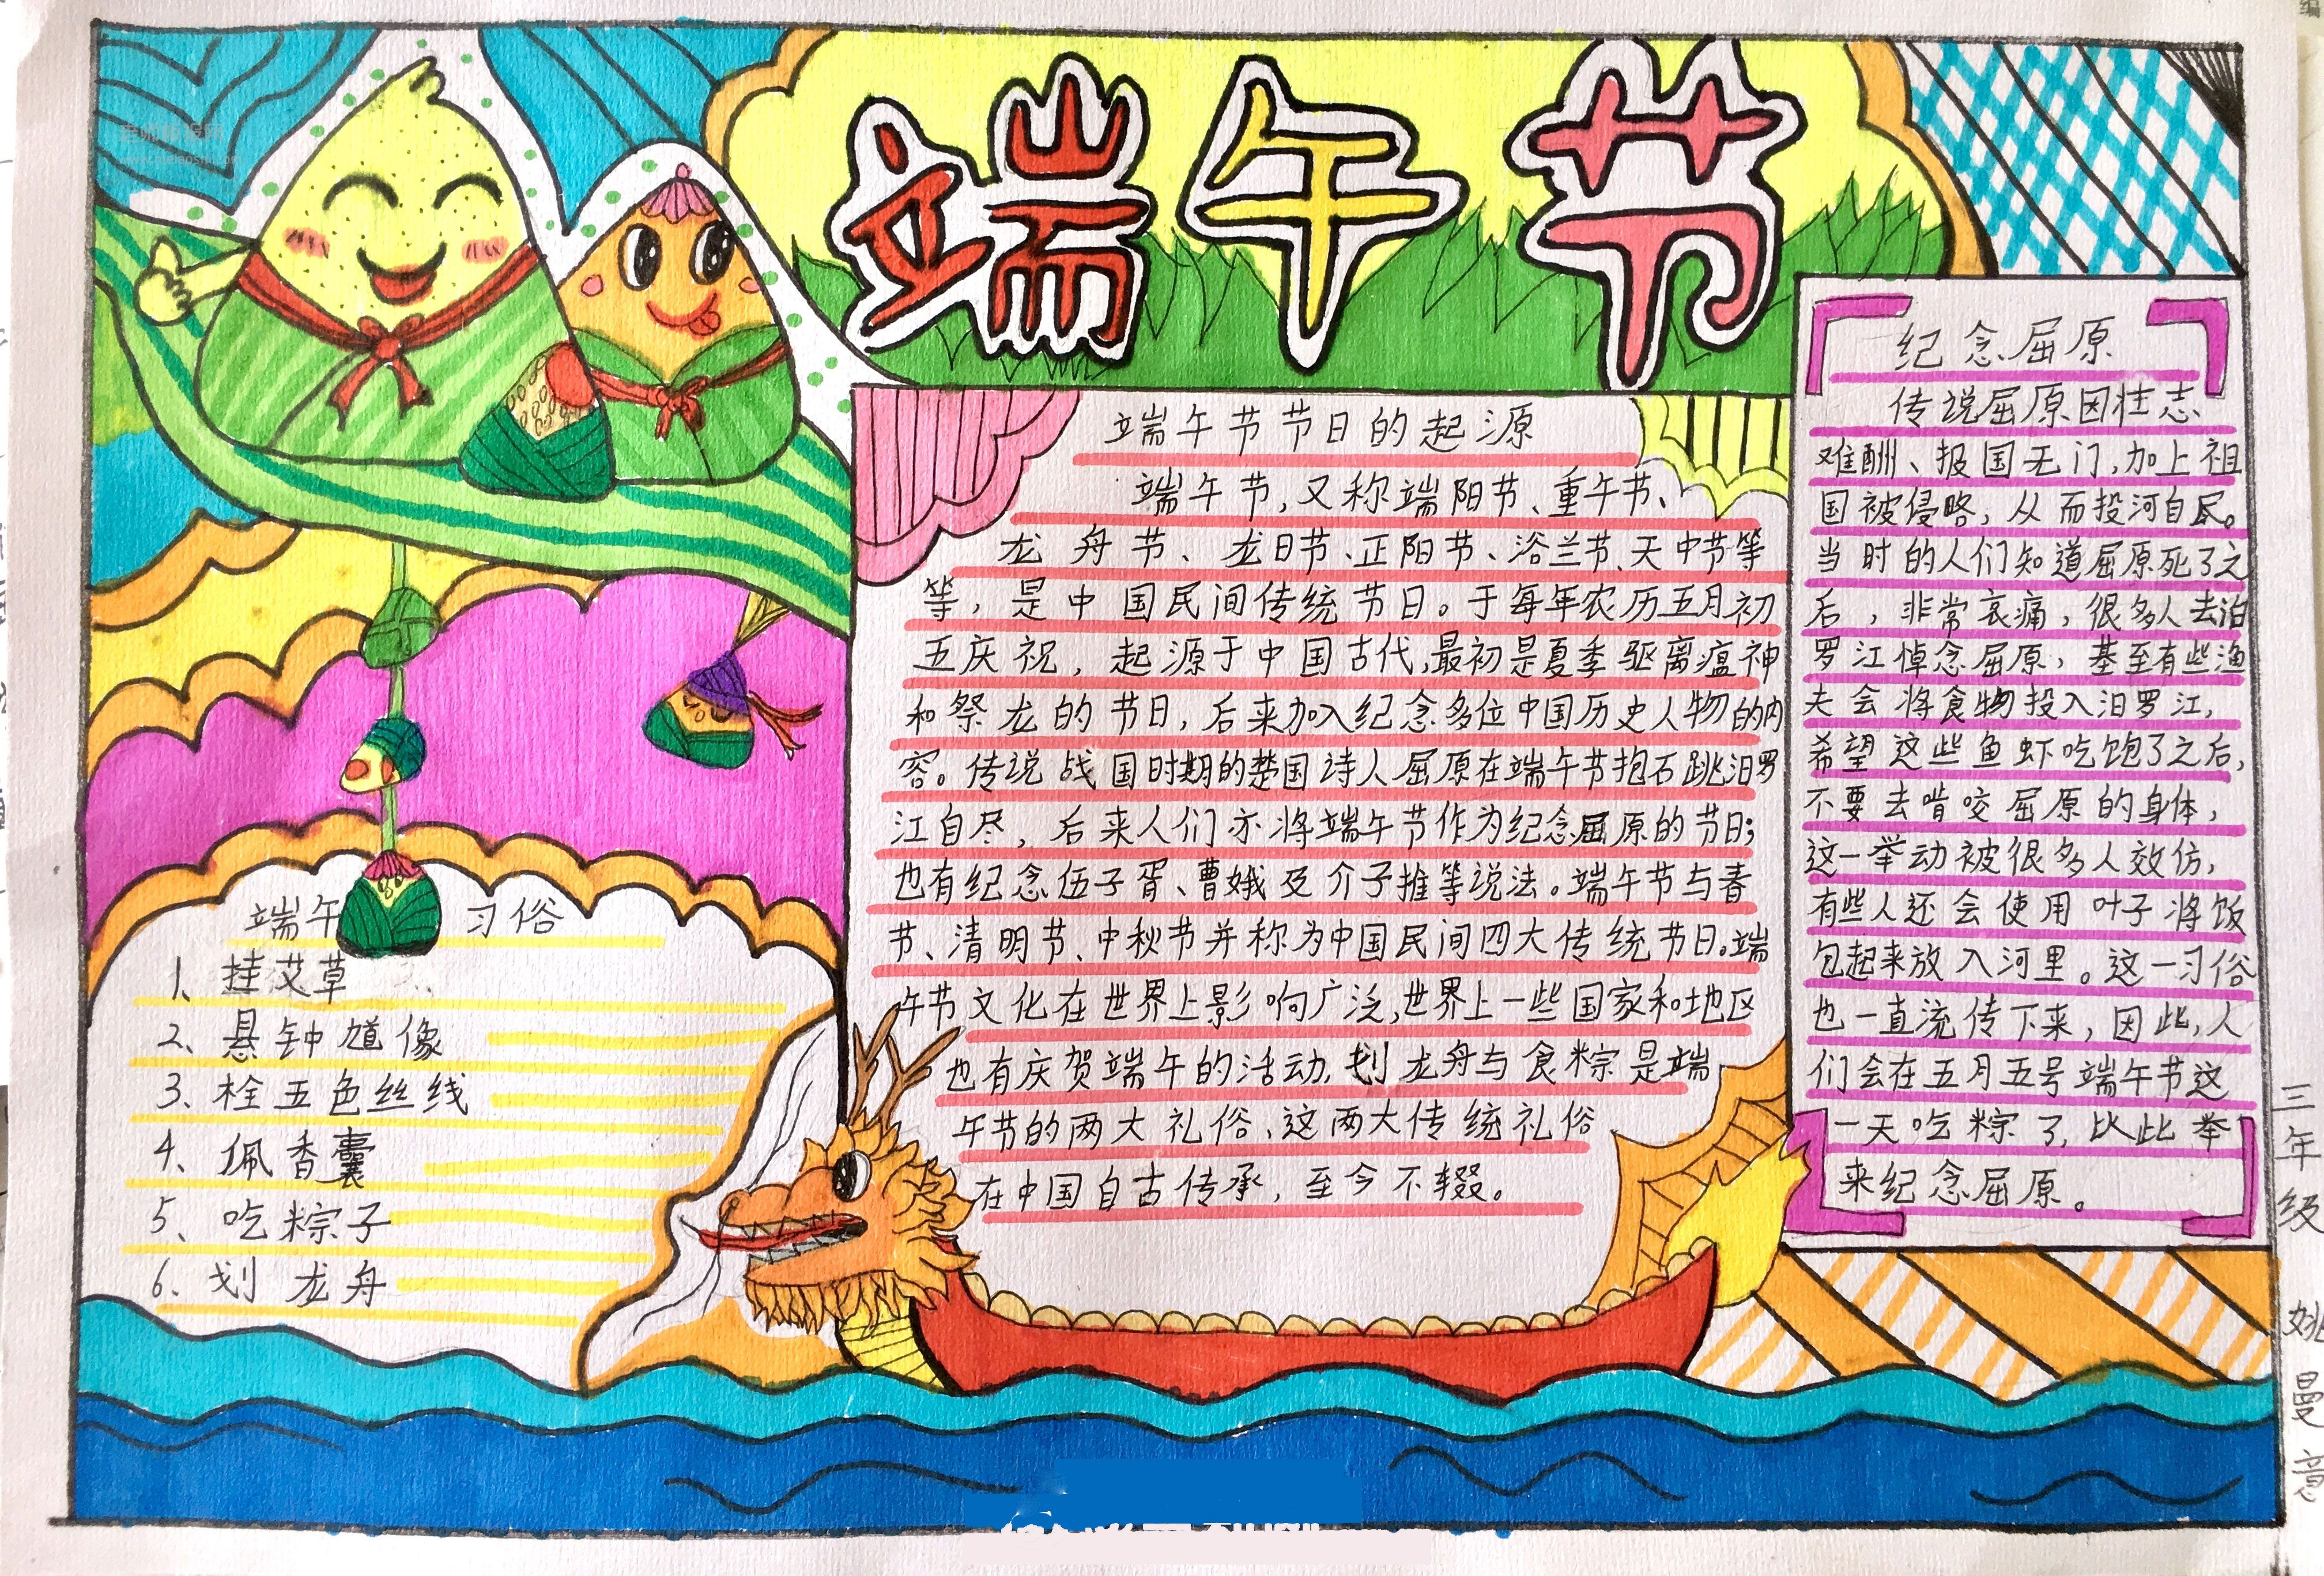 端午节
端午节节日的起源
端午节,又称端阳节、重午节、
龙舟节、龙日节、正阳节、浴兰节、天中节等
等，是中国民间传统节日。于每年农历五月初
五庆祝，起源于中国古代,最初是夏季驱离瘟神
和祭龙的节日，后来加入纪念多位中国历史人物的内
容。传说战国时期的楚国诗人屈原在端午节抱石跳汨罗
江自尽，后来人们亦将端午节作为纪念屈原的节日;
也有纪念伍子胥、曹娥及介子推等说法。端午节与春
节、清明节、中秋节并称为中国民间四大传统节日。端
午节文化在世界上影响广泛,世界上一些国家和地区
也有庆贺端午的活动,划龙舟与食粽是端
午节的两大礼俗、这两大传统礼俗
在中国自古传承，至今不辍。
纪念屈原
传说屈原因壮志
难酬、报国无门,加上祖
国被侵略，从而投河自民。
当时的人们知道屈原死了之
后，非常哀痛，很多人去泊
罗江悼念屈原，基至有些渔
夫会将食物投入汨罗江，
希望这些鱼虾吃饱了之后，
不要去啃咬屈原的身体，
这一举动被很多人效仿，
有些人还会使用叶子将饭
包起来放入河里。这一习俗
也一直流传下来，因此,人
们会在五月五号端午节这
一天吃粽了，比此举
来纪念屈原。
端午 习俗
1、挂艾草
2、悬钟馗像
3、栓五色丝线
4、佩香囊
5、吃粽子
6、划龙舟
三年级 姚曼意